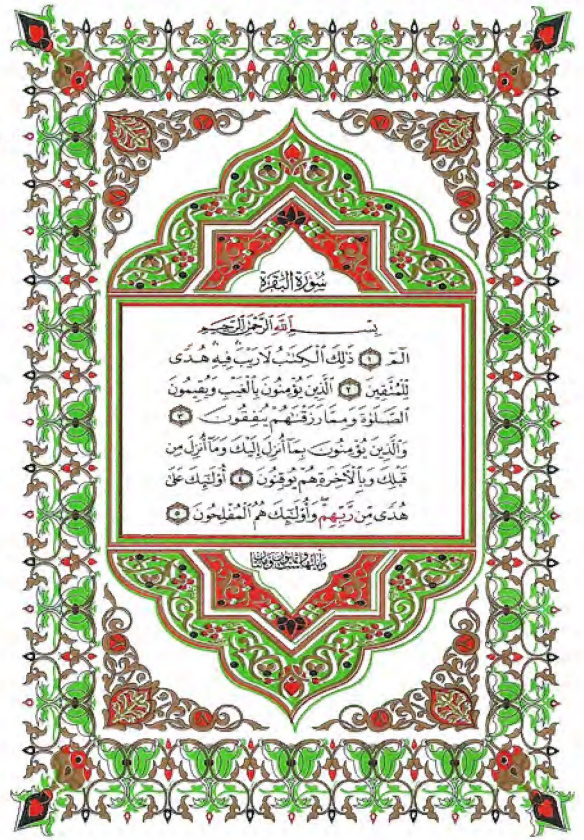 سُورَةُ البَقَرَةِ
بِسْمِ اللَّهِ الرَّحْمَٰنِ الرَّحِيمِ
الٓمٓ ١ ذَٰلِكَ الْكِتَٰبُ لَا رَيْبَ ۛ فِيهِ ۛ هُدًى
لِّلْمُتَّقِينَ ٢ الَّذِينَ يُؤْمِنُونَ بِالْغَيْبِ وَيُقِيمُونَ
الصَّلَوٰةَ وَمِمَّا رَزَقْنَٰهُمْ يُنفِقُونَ ٣
وَالَّذِينَ يُؤْمِنُونَ بِمَآ أُنزِلَ إِلَيْكَ وَمَآ أُنزِلَ مِن
قَبْلِكَ وَبِالْآخِرَةِ هُمْ يُوقِنُونَ ٤ أُوْلَٰٓئِكَ عَلَىٰ
هُدًى مِّن رَّبِّهِمْ ۖ وَأُوْلَٰٓئِكَ هُمُ الْمُفْلِحُونَ ٥
وَآيَاتُهَا سِتٌّ وَثَمَانُونَ وَمِائَتَانِ